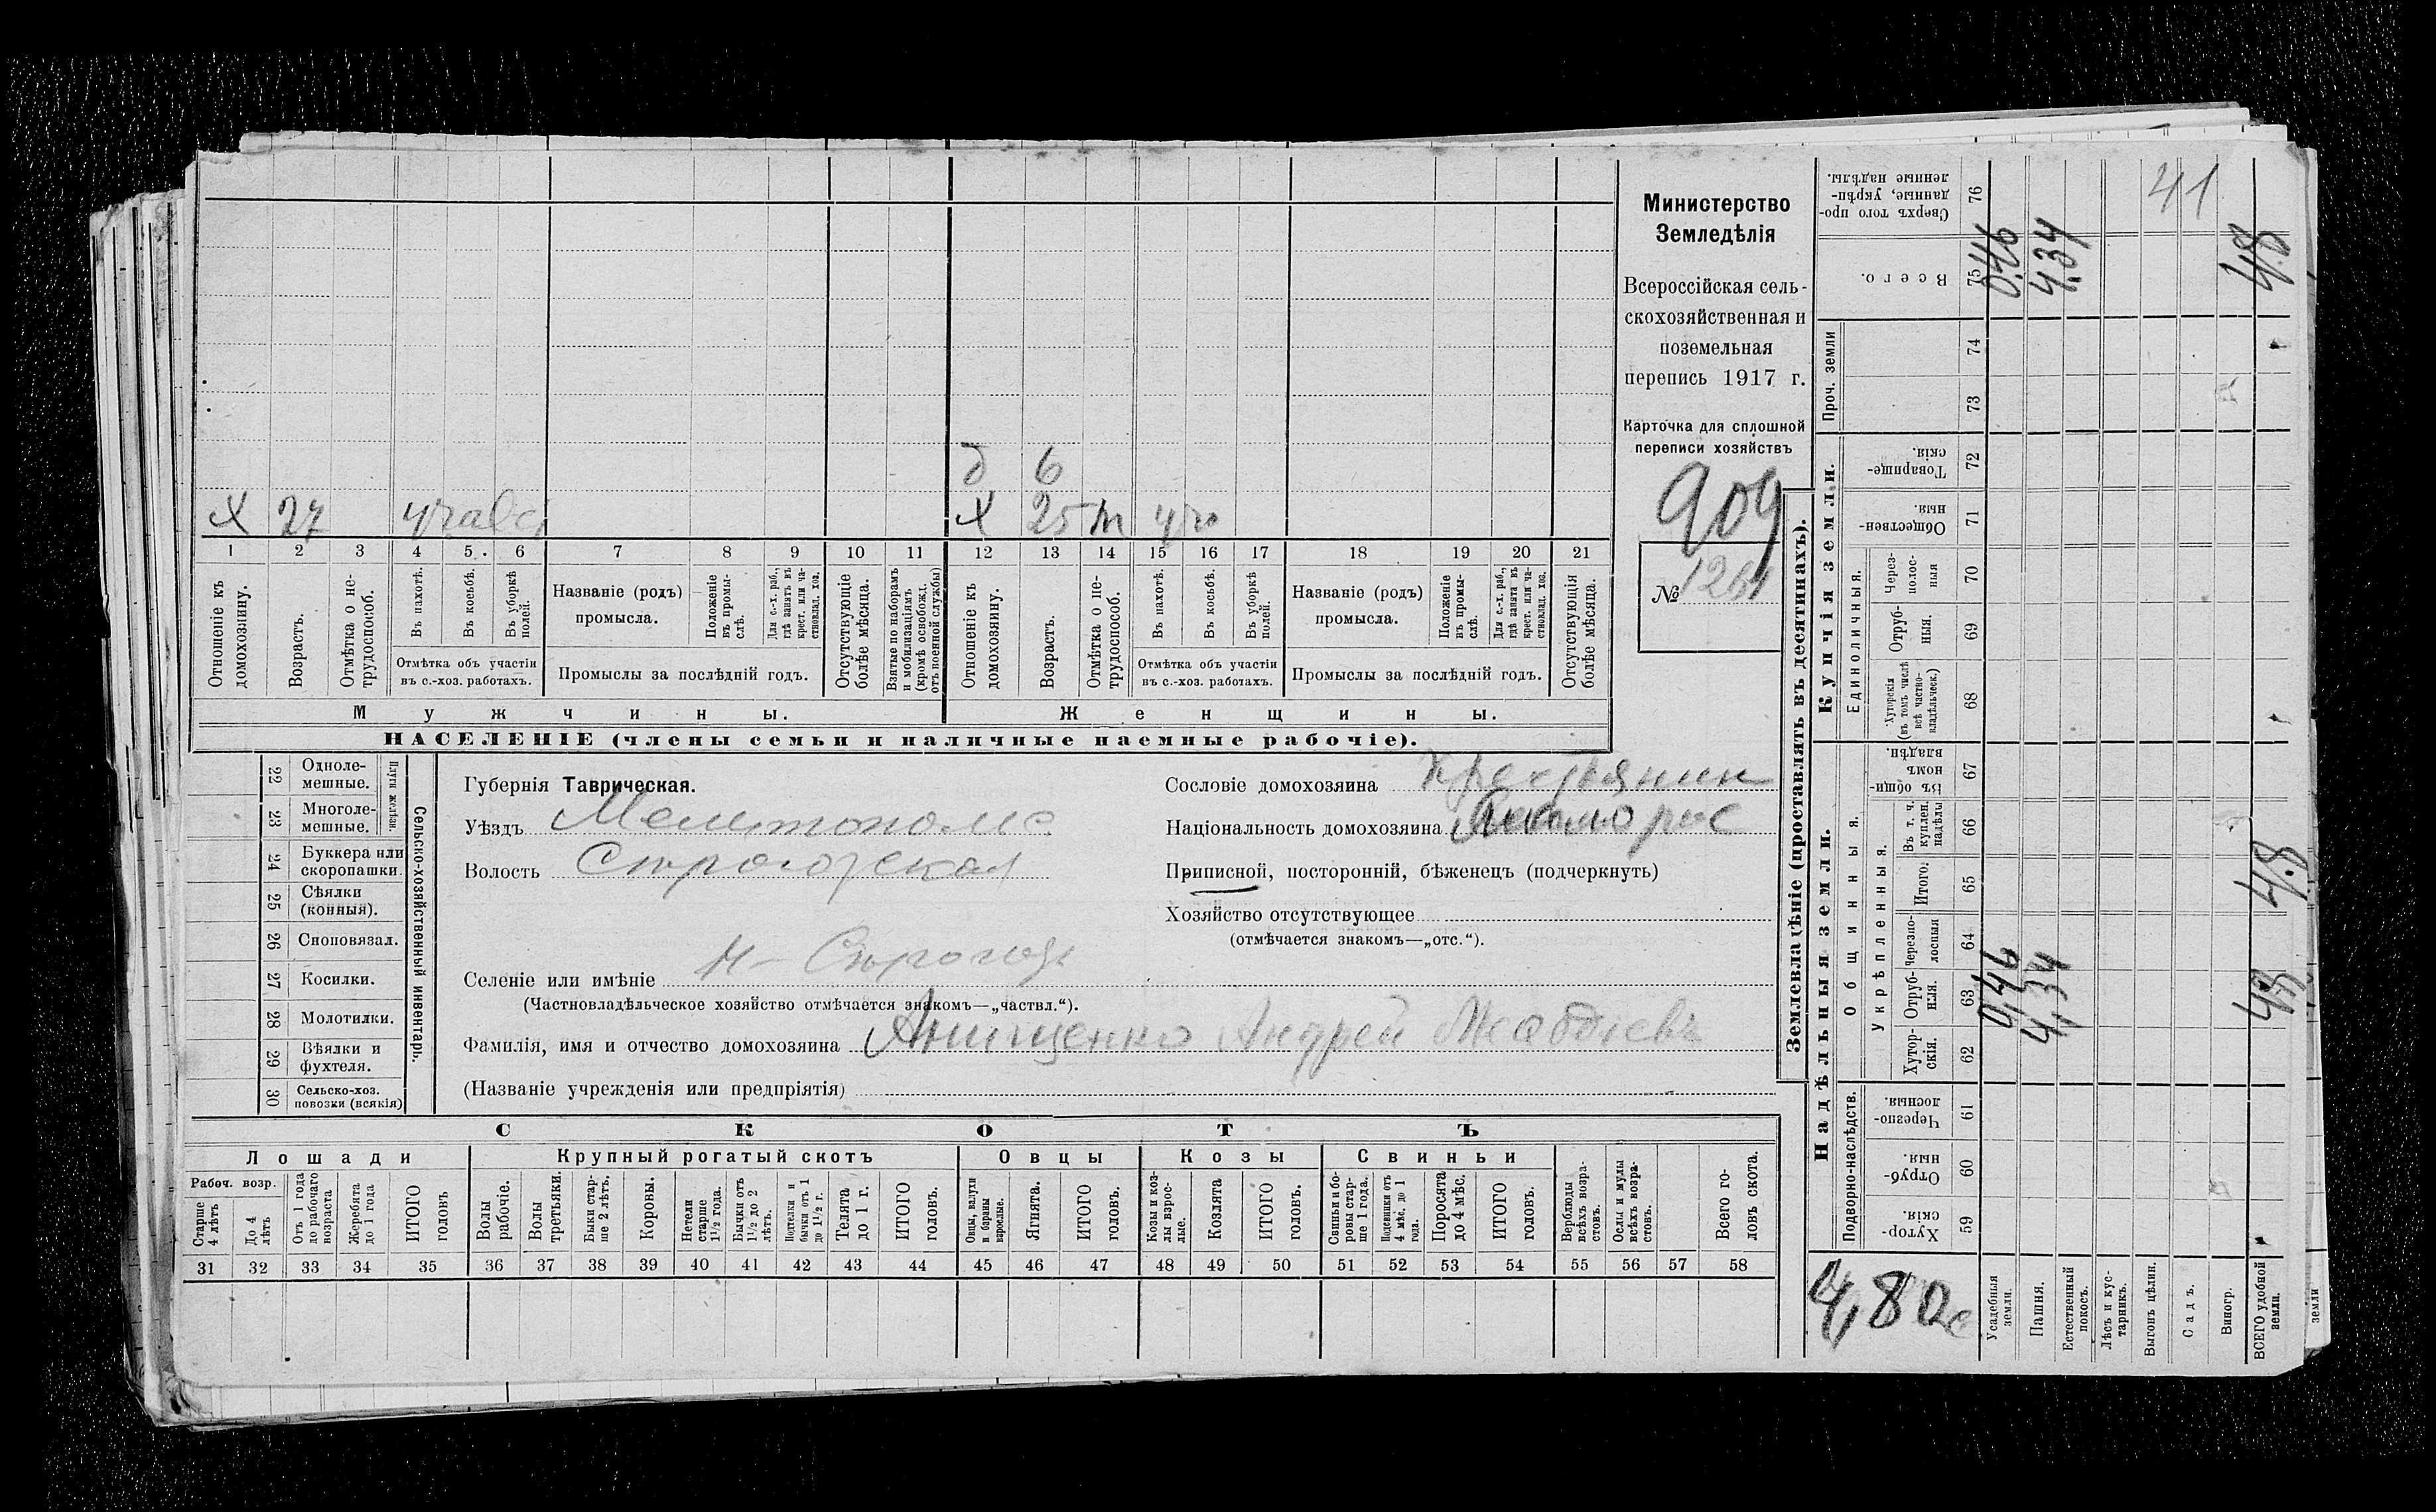 д 6
Х 27
Х 25
1 2 3 4 5 6 7 8 9 10 11 12 13 14 15 16 17 18 19 20 21
Отношеніе къ домохозяину.
Возрастъ.
Отмѣтка о нетрудоспособ.
Въ пахотѣ.
Въ косьбѣ.
Въ уборкѣ полей.
Отмѣтка объ участіи
въ с.-хоз. работахъ.
Названіе (родъ)
промысла.
Положеніе въ промыслѣ.
Для с.-х. раб., гдѣ занятъ въ крест. или частновлад. хоз.
Промыслы за послѣдній годъ.
Отсутствующіе болѣе мѣсяца.
Взятые по наборамъ и мобилизаціямъ (кромѣ освобожд. отъ военной службы)
Отношеніе къ домохозяину.
Возрастъ.
Отмѣтка о нетрудоспособ.
Въ пахотѣ.
Въ косьбѣ.
Въ уборкѣ полей.
Отмѣтка объ участіи
въ с.-хоз. работахъ.
Названіе (родъ)
промысла.
Положеніе въ промыслѣ.
Для с.-х. раб., гдѣ занята въ крест. или частновлад. хоз.
Промыслы за послѣдній годъ.
Отсутствующія болѣе мѣсяца.
Мужчины. Женщины.
НАСЕЛЕНІЕ (члены семьи и наличные наемные рабочіе).
Министерство
Земледѣлія
Всероссійская сель-
скохозяйственная и
поземельная
перепись 1917 г.
Карточка для сплошной
переписи хозяйствъ
909
№ 1261
Сельско-хозяйственный инвентарь.
Плуги желѣзн.
22 Однолемешные.
23 Многолемешные.
24 Буккера или скоропашки.
25 Сѣялки (конныя).
26 Сноповязал.
27 Косилки.
28 Молотилки.
29 Вѣялки и фухтеля.
30 Сельско-хоз. повозки (всякія)
Губернія Таврическая.
Уѣздъ Мелитополь
Волость Строгозская
Селеніе или имѣніе Н-Сѣрогозы
(Частновладѣльческое хозяйство отмѣчается знакомъ—„частвл.“).
Фамилія, имя и отчество домохозяина Анищенко Андрей
(Названіе учрежденія или предпріятія)
Сословіе домохозяина крестьянин
Національность домохозяина Малорос
Приписной, посторонній, бѣженецъ (подчеркнуть)
Хозяйство отсутствующее
(отмѣчается знакомъ—„отс.“).
СКОТЪ
Лошади Крупный рогатый скотъ Овцы Козы Свиньи
Рабоч. возр.
Старше 4 лѣтъ
До 4 лѣтъ
Отъ 1 года до рабочаго возраста
Жеребята до 1 года
ИТОГО головъ
Волы рабочіе.
Волы третьяки.
Быки старше 2 лѣтъ.
Коровы.
Нетели старше 1½ года.
Бычки отъ 1½ до 2 лѣтъ.
Подтелки и бычки отъ 1 до 1½ г.
Телята до 1 г.
ИТОГО головъ.
Овцы, валухи и бараны взрослые.
Ягнята.
ИТОГО головъ.
Козы и козлы взрослые.
Козлята
ИТОГО головъ.
Свиньи и боровы старше 1 года.
Подсвинки отъ 4 мѣс. до 1 года.
Поросята до 4 мѣс.
ИТОГО головъ.
Верблюды всѣхъ возрастовъ.
Ослы и мулы всѣхъ возрастовъ.
Всего головъ скота.
31 32 33 34 35 36 37 38 39 40 41 42 43 44 45 46 47 48 49 50 51 52 53 54 55 56 57 58
Землевладѣніе (проставлять въ десятинахъ).
Надѣльныя земли.
Купчія земли.
Проч. земли
Подворно-наслѣдств.
Общинныя.
Укрѣпленныя.
Единоличныя.
Хуторскія. 59
Отрубныя. 60
Черезполосныя. 61
Хуторскія. 62
Отрубныя. 63
Черезполосныя 64
Итого. 65
Въ т. ч. куплен. надѣлы 66
Въ общинномъ владѣн. 67
Хуторскія (въ томъ числѣ всѣ частновладѣльческ.) 68
Отрубныя. 69
Черезполосныя 70
Общественныя. 71
Товарищескія. 72
73
74
Всего. 75
Сверхъ того проданные, укрѣпленные надѣлы. 76
41
0,46 4,34 4,8
0,46 4,34 4,8
4,8
4,80
Усадебныя земли.
Пашня.
Естественный покосъ.
Лѣсъ и кустарникъ.
Выгонъ цѣлин.
Садъ.
Виногр.
ВСЕГО удобной земли.
земли